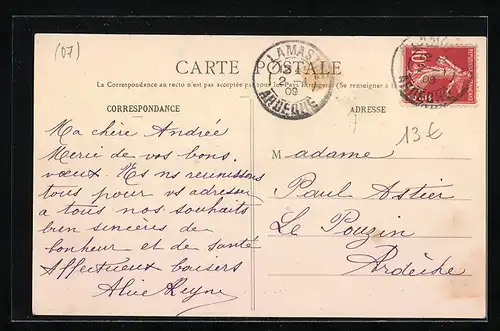 (07)
CARTE POSTALE
LAMAS
2
09
ARDECHE
10
09
ARDECHE
La Correspondance au recto n'est pas acceptée par tous les Pays Étrangers (Se renseigner à
CORRESPONDANCE
ADRESSE
13€
Ma chère Andrée
Merie de vos bons
vœux. Ns ns reunissons
tous pour vs adresser
a tous nos souhaits
bien sincères de
bonheur et de santé
Affectueux baisers
Alice Reyne
Madame
Paul Astier
Le Pouzin
Ardèche